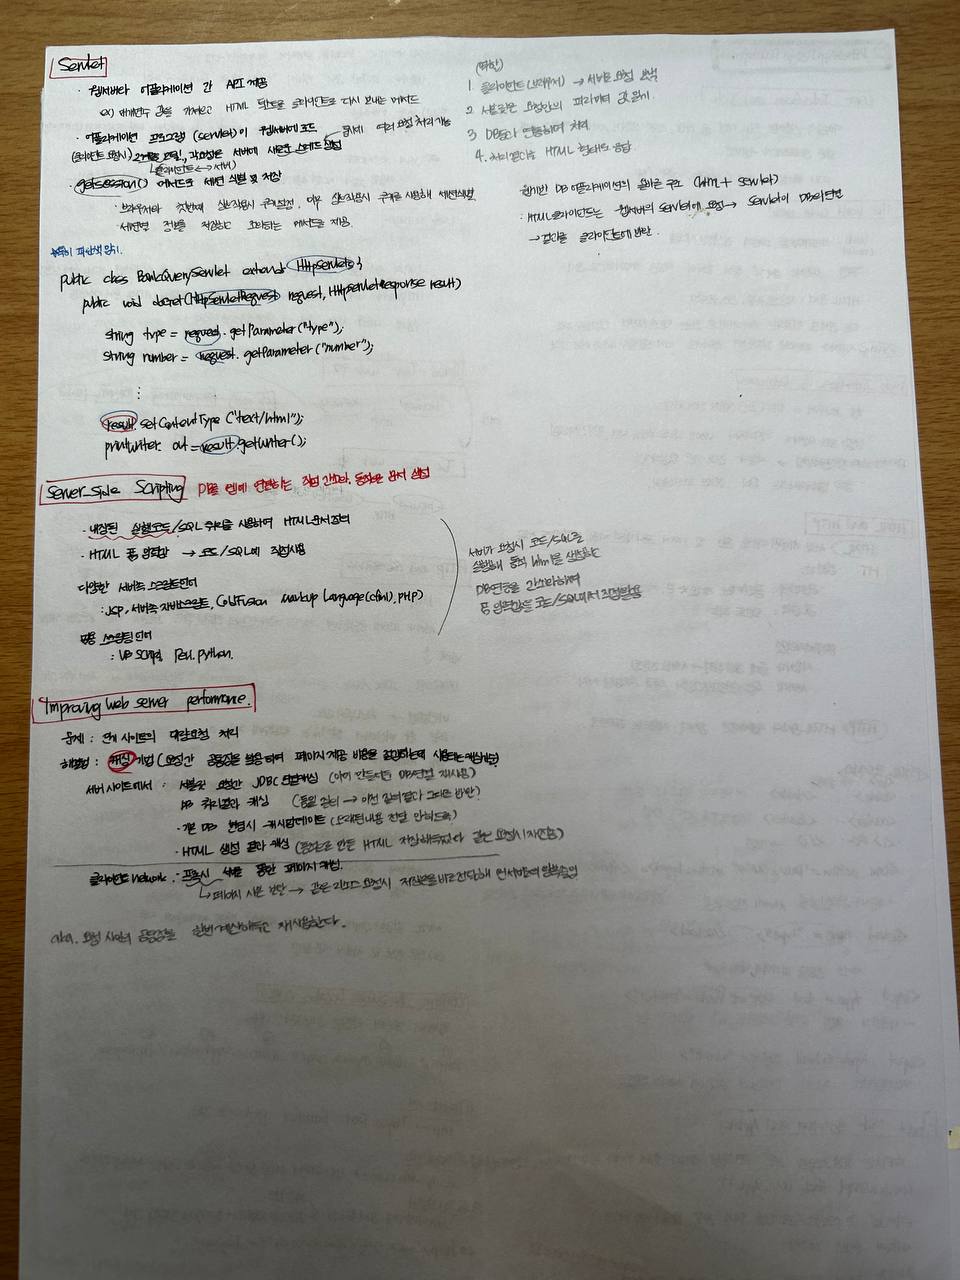 Servlet
· 웹서버와 어플리케이션 간 API 제공
ex) 매개변수 값을 가져오고 HTML 텍스트를 클라이언트로 다시 보내는 메서드
· 어플리케이션 프로그램 (servlet)이 웹서버에 로드
동시에 여러 요청 처리 가능
(클라이언트 요청시) 각 요청은 서버에 새로운 스레드 생성
클라이언트 ↔ 서버
· getsession() 메서드로 세션 식별 및 저장
· 브라우저와 첫번째 상호작용시 쿠키설정, 이후 상호작용시 쿠키를 사용해 세션식별
· 세션별 정보를 저장하고 조회하는 메서드를 제공.
(역할)
1. 클라이언트(브라우저) → 서버로 요청
2. 서블릿은 요청안의 파라미터 값 읽기.
3. DB등과 연동하여 처리
4. 처리결과를 HTML 형태로 응답
DB 어플리케이션의 올바른 구조 (htm + servlet)
: HTML클라이언트는 웹서버의 servlet에 요청 → servlet이 DB와 연결
→ 결과를 클라이언트에 반환.
*특히 파란색 암기.
public class BankQueryServlet extends HttpServlet {
public void doGet(HttpServletRequest request, HttpServletResponse result)
string type = request.getParameter("type");
string number = request.getParameter("number");
:
result.setContentType ("text/html");
printwriter out = result.getwriter();
Server_side Scripting DB를 웹에 연결하는 작업 간소화, 동적으로 문서 생성
· 내장된 실행코드/SQL 쿼리를 사용하여 HTML문서 정의
· HTML 폼 입력값 → 코드/SQL에 직접사용
다양한 서버측 스크립트언어
: JSP, 서버측 자바스크립트, ColdFusion Markup Language(cfml), PHP)
범용 스크립팅 언어
: VB script, Perl, python.
서버가 요청시 코드/SQL을
실행해 동적 html을 생성하는
DB연동을 간소화하며
폼 입력값을 코드/SQL에서 직접활용
Improving web server performance.
문제 : 인기 사이트의 대량요청 처리
해결법 : 캐싱 기법 (요청간 공통점을 활용하여 페이지 제공 비용을 절감하는데 사용되는 캐싱기법)
서버 사이트에서 : · 서블릿 요청간 JDBC 연결캐싱 (이미 만들어둔 DB연결 재사용)
· DB 쿼리결과 캐싱 (동일 질의 → 이전 질의결과 그대로 반환)
· 기본 DB 변경시 캐시업데이트 (오래된내용 전달 안하도록)
· HTML 생성 결과 캐싱 (동적으로 만든 HTML 저장해두었다가 같은 요청시 재전송)
클라이언트 network : · 프록시 서버를 통한 페이지 캐싱.
↳ 페이지 사본 보관 → 같은 리소스 요청시 저장본을 바로 전달해 웹서버의 부하줄임
aka. 요청 사이의 공통점을 한번 계산해두고 재사용한다.